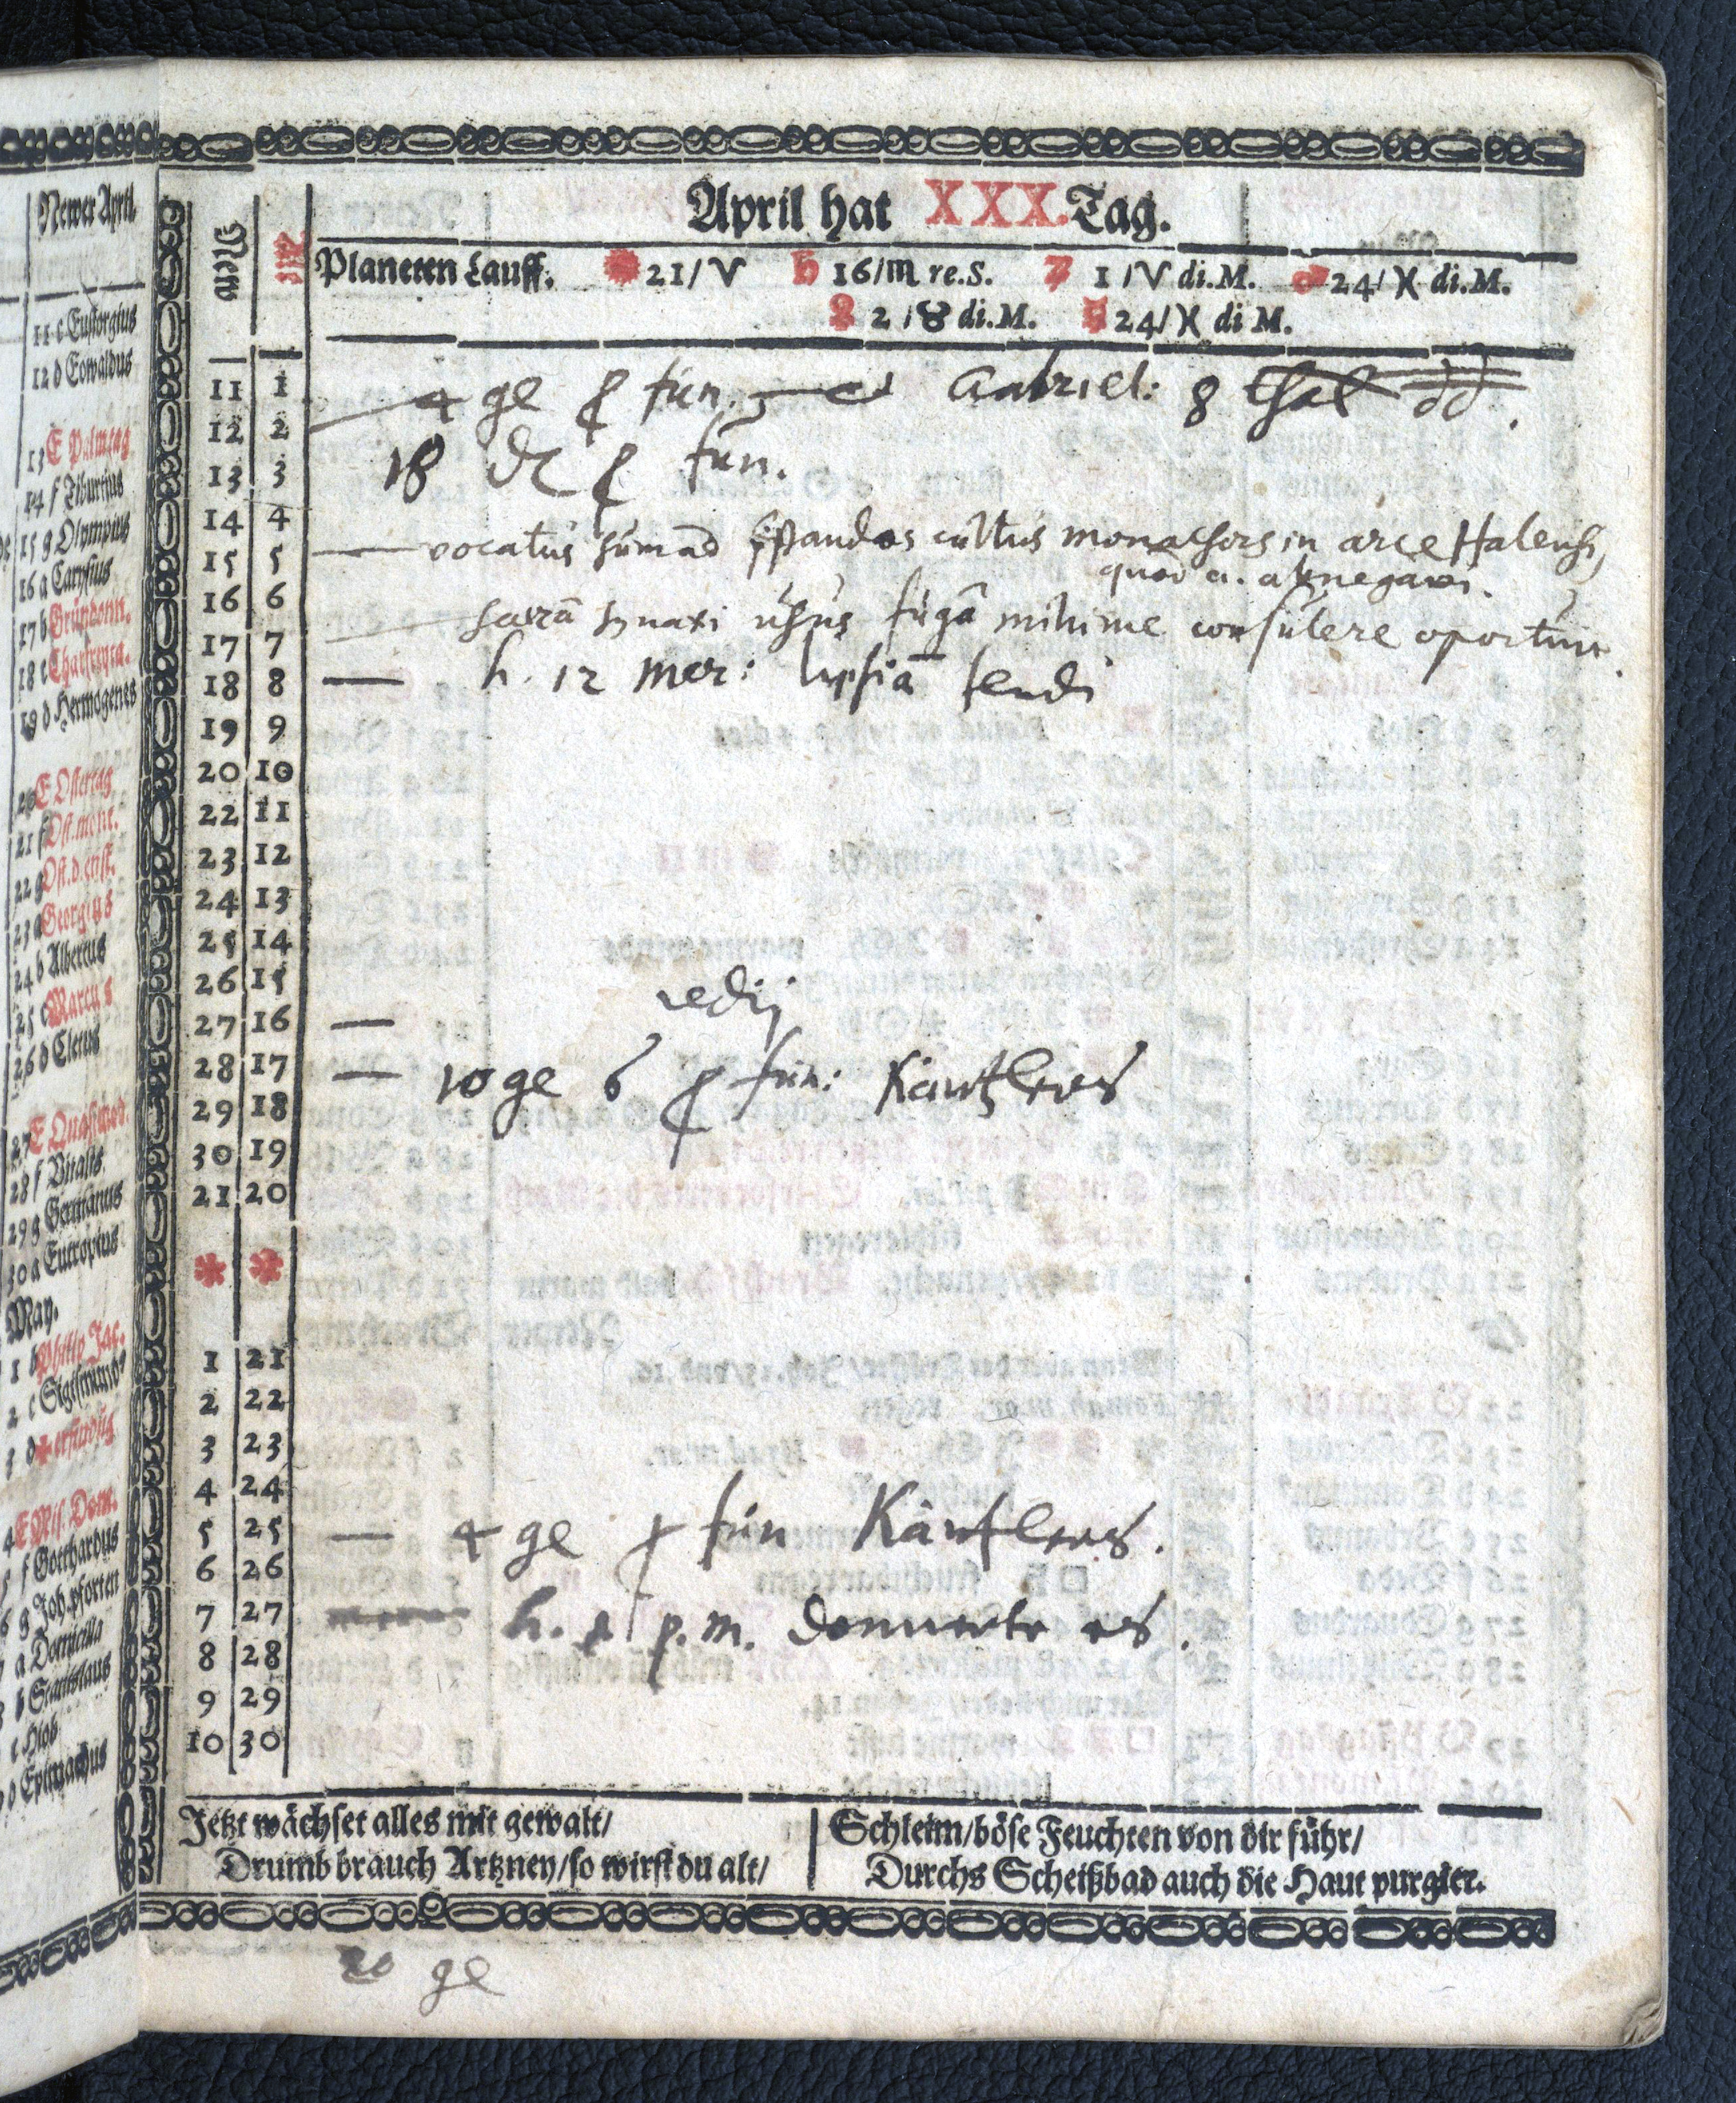 Newer April.
11 c Eustorgius
12 d Eowaldus
13 E Palmtag
14 f Tiburtius
15 g Olympius
16 a Carysius
17 b Gründonn.
18 c Charfreyta.
19 d Hermogenes
20 E Ostertag
21 f Ost.mont.
22 g Ost.d.enst.
23 a Georgius
24 b Albertus
25 c Marcus
26 d Cletus
27 E Quasimod.
28 f Vitalis
29 g Germanus
30 a Eutropius
May.
1 b Philip Jac.
2 c Sigismund
3 d ✝ erfindūg
4 E Mis. Dom.
5 f Gotthardus
6 g Joh.pforten
7 a Domicilla
8 b Stanislaus
c Hiob
d Epimachus
April hat XXX. Tag.
New Alt
Planeten Lauff. 21/♈ ♄ 16/♏ re.S. ♃ 1/♈ di.M. ♂ 24/♓ di.M.
♀ 2/♉ di.M. ☿ 24/♓ di M.
11 1 4 ge fun. Gabriel: 8 thal dd.
12 2
13 3 18 fun.
14 4
15 5 — vocatus sum ad cultus in arce Halensi,
quod
16 6
17 7 — usus fugā minime consulere oportuit.
18 8 — h. 12 mer: lipsiā tendi
19 9
20 10
22 11
23 12
24 13
25 14
26 15
27 16 — redij
28 17 — 10 ge 6 fun: Käntlers
29 18
30 19
21 20
* *
1 21
2 22
3 23
4 24
5 25 — 4 ge fun Käntlers.
6 26
7 27 h. p.m. donnerte es.
8 28
9 29
10 30
Jetzt wächset alles mit gewalt/
Drumb brauch Artzney/so wirst du alt/
Schleim/böse Feuchten von dir führ/
Durchs Scheißbad auch die Haut purgier.
20 ge